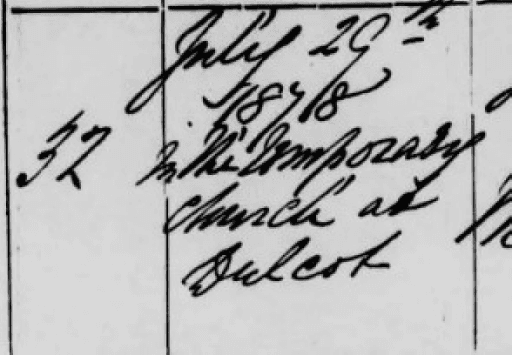 July 29th
1878
32 In the temporary
church at
Dulcot